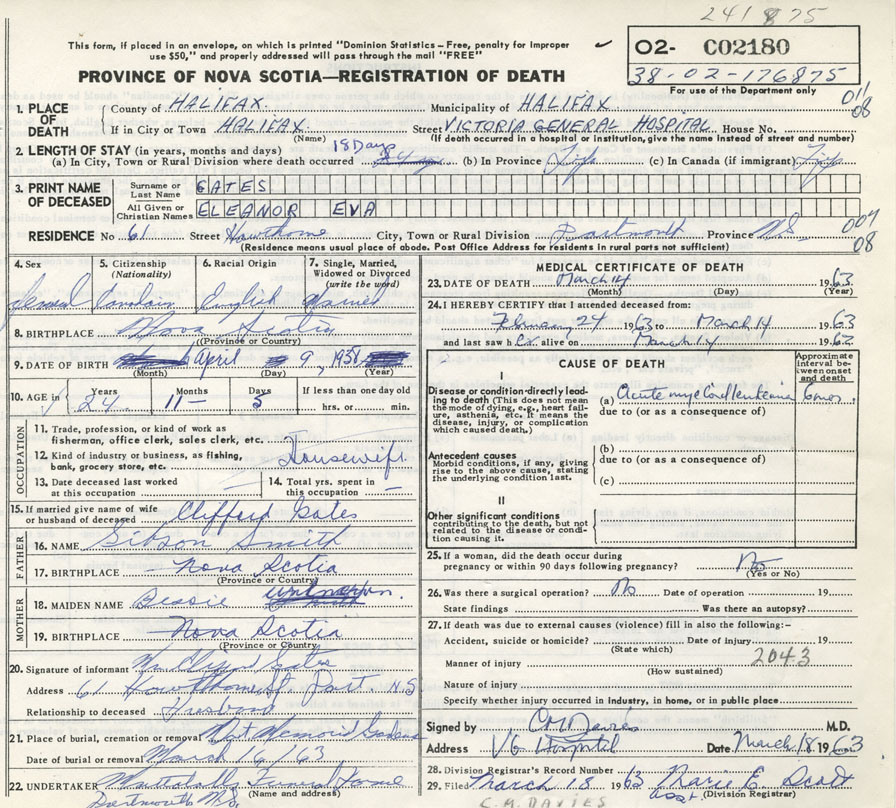 241875
This form, if placed in an envelope, on which is printed "Dominion Statistics – Free, penalty for improper
use $50," and properly addressed will pass through the mail "FREE"
O2- C02180
38-02-176875
For use of the Department only
PROVINCE OF NOVA SCOTIA—REGISTRATION OF DEATH
1. PLACE OF DEATH
County of HALIFAX Municipality of HALIFAX 011
08
If in City or Town HALIFAX Street VICTORIA GENERAL HOSPITAL House No.
(Name) (If death occurred in a hospital or institution, give the name instead of street and number)
2. LENGTH OF STAY (in years, months and days) 18 Days
(a) In City, Town or Rural Division where death occurred (b) In Province Life (c) In Canada (if immigrant) Life
3. PRINT NAME OF DECEASED
Surname or Last Name GATES
All Given or Christian Names ELEANOR EVA
RESIDENCE No 61 Street Hawthorne City, Town or Rural Division Dartmouth Province N.S 007
08
(Residence means usual place of abode. Post Office Address for residents in rural parts not sufficient)
4. Sex
5. Citizenship (Nationality)
6. Racial Origin
7. Single, Married, Widowed or Divorced (write the word)
Female Canadian English Married
8. BIRTHPLACE Nova Scotia
(Province or Country)
9. DATE OF BIRTH April 9, 1938
(Month) (Day) (Year)
10. AGE in Years Months Days If less than one day old
24 11 5 hrs. or min.
OCCUPATION
11. Trade, profession, or kind of work as
fisherman, office clerk, sales clerk, etc.
12. Kind of industry or business, as fishing,
bank, grocery store, etc. Housewife
13. Date deceased last worked at this occupation
14. Total yrs. spent in this occupation –
15. If married give name of wife
or husband of deceased Clifford Gates
FATHER
16. NAME Gibson Smith
17. BIRTHPLACE Nova Scotia
(Province or Country)
MOTHER
18. MAIDEN NAME Bessie
19. BIRTHPLACE Nova Scotia
(Province or Country)
20. Signature of informant Gates
Address 61 Hawthorne St. Dart. N.S
Relationship to deceased Husband
21. Place of burial, cremation or removal Dart Memorial Gardens
Date of burial or removal March 16/63
22. UNDERTAKER Funeral Home
(Name and address)
Dartmouth N.S.
MEDICAL CERTIFICATE OF DEATH
23. DATE OF DEATH March 14 1963
(Month) (Day) (Year)
24. I HEREBY CERTIFY that I attended deceased from:
February 24 1963 to March 14 1963
and last saw her alive on March 14 1963
CAUSE OF DEATH
Approximate interval between onset and death
I
Disease or condition-directly leading to death (This does not mean
the mode of dying, e.g., heart failure, asthenia, etc. It means the
disease, injury, or complication
which caused death.)
(a) Acute myeloid leukemia 6 mos.
due to (or as a consequence of)
Antecedent causes
Morbid conditions, if any, giving
rise to the above cause, stating
the underlying condition last.
(b)
due to (or as a consequence of)
(c)
II
Other significant conditions
contributing to the death, but not
related to the disease or condition causing it.
25. If a woman, did the death occur during
pregnancy or within 90 days following pregnancy? No
(Yes or No)
26. Was there a surgical operation? No Date of operation 19
State findings Was there an autopsy?
27. If death was due to external causes (violence) fill in also the following:–
Accident, suicide or homicide? Date of injury 19
(State which)
Manner of injury 2043
(How sustained)
Nature of injury
Specify whether injury occurred in industry, in home, or in public place
Signed by CM Davies M.D.
Address V G Hospital Date March 18 1963
28. Division Registrar's Record Number
29. Filed March 18 1963 Marie E. Scott
asst. (Division Registrar)
C.M. DAVIES